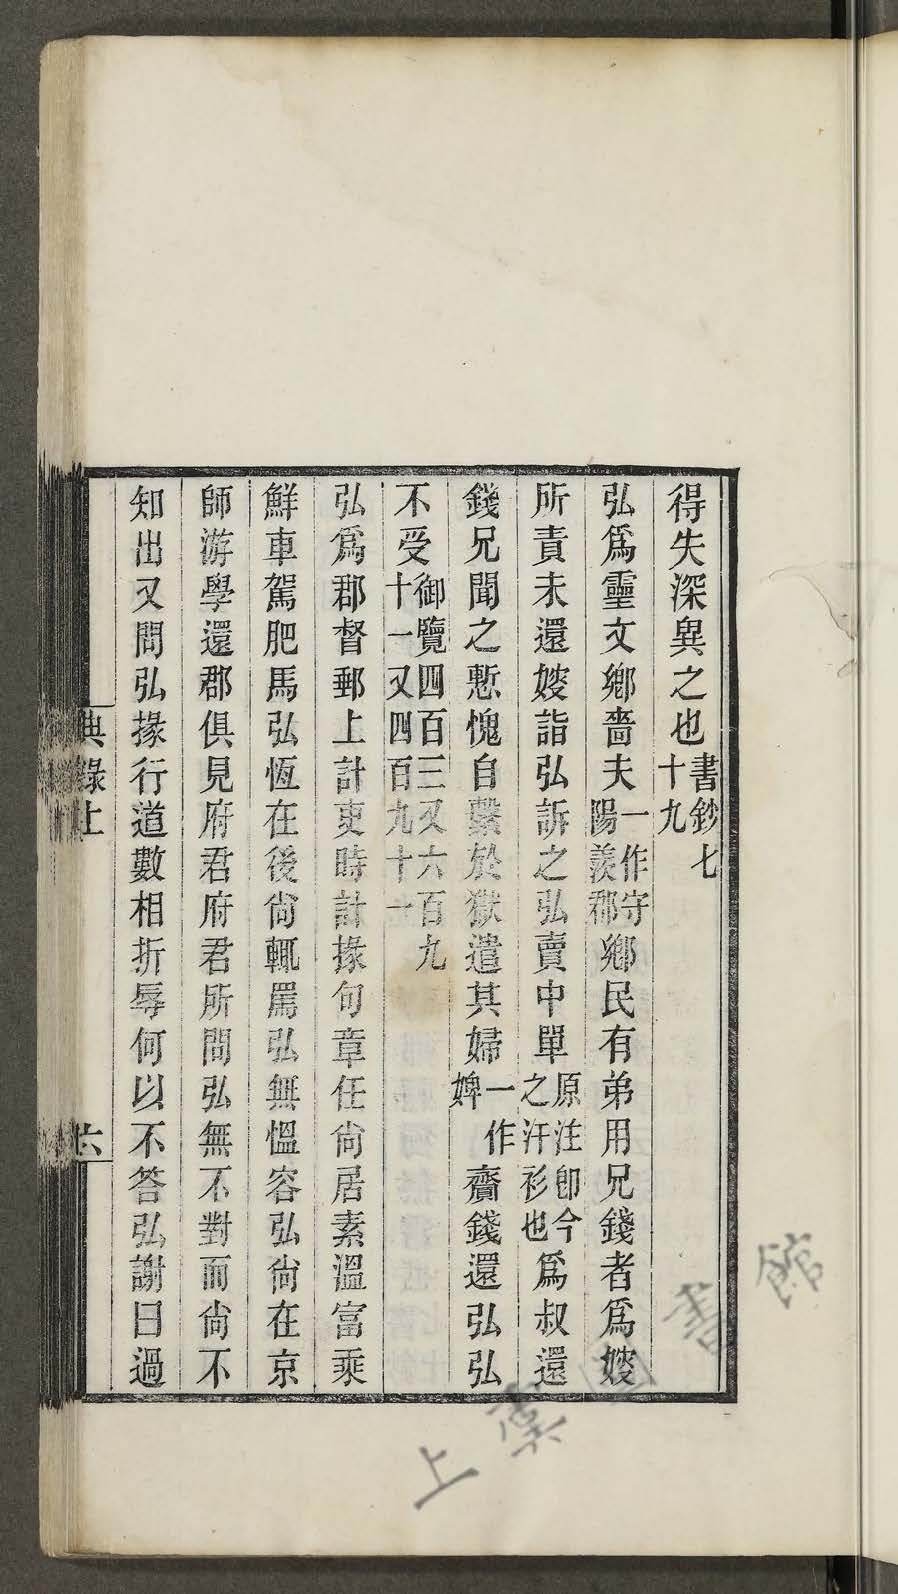 得失深異之也書鈔七十九
弘爲靈文鄉嗇夫一作守陽羨郡鄉民有弟用兄錢者爲嫂
所責未還嫂詣弘訴之弘賣中單原注卽今之汗衫也爲叔還
錢兄聞之慙愧自繫於獄遣其婦一作婢齎錢還弘弘
不受御覽四百三又六百九十一又四百九十一
弘爲郡督郵上計吏時計掾句章任尙居素溫富乘
鮮車駕肥馬弘恆在後尙輒罵弘無慍容弘尙在京
師游學還郡俱見府君府君所問弘無不對而尙不
知出又問弘掾行道數相折辱何以不答弘謝曰過
典錄上
六
上虞圖書館